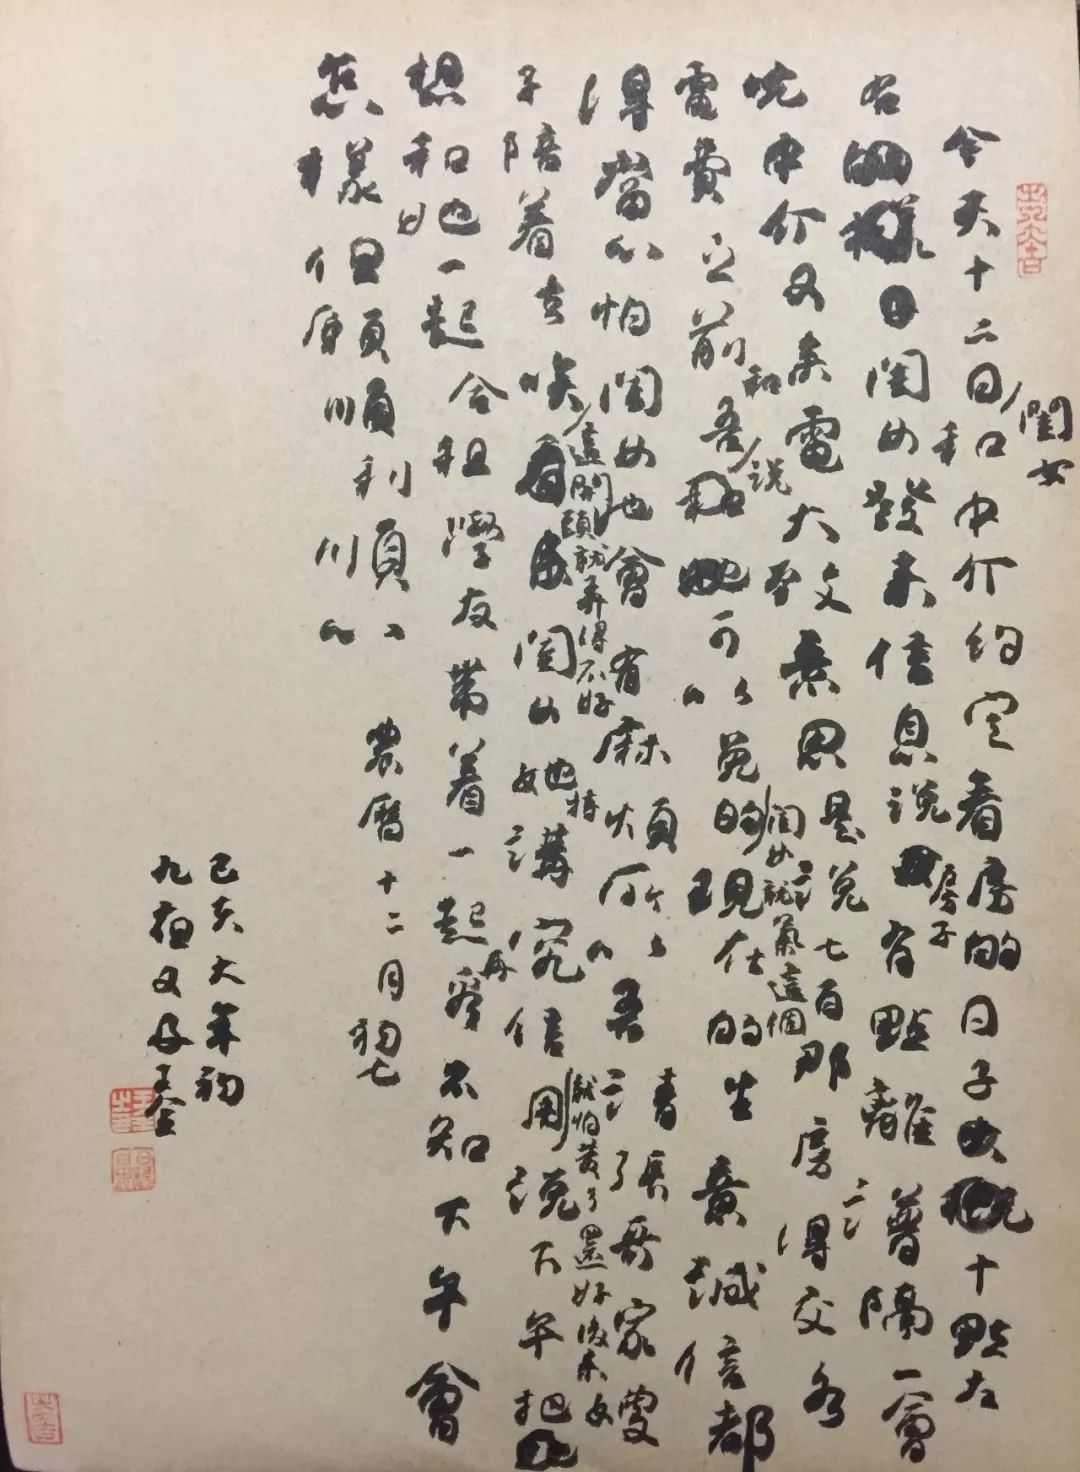 閨女
今天十二日和中介約定看房的日子大概十點左
右的樣日閨女發來信息說房子有點離譜隔一會
中介又來電大致文意思是說七百那房得交水
電費之前和吾說她可以免的現在的生意誠信都
閨女就氣這個
得當心怕閨女也會有麻煩所以吾請了張哥家嫂
這開頭就弄得不好
就怕黃了還好後來女
子陪着去唉看來閨女她特講究信用再說下午把
想和她一起合租學友帶着一起看不知下午會
怎樣但願順利順心
但願順利順心
農曆十二月初七
己亥大年初
九夜又